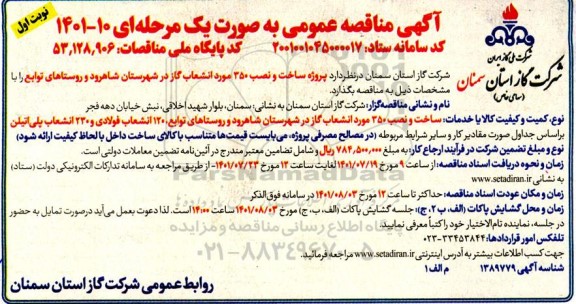 نوبت اول
آگهی مناقصه عمومی به صورت یک مرحله‌ای ۱۰-۱۴۰۱
کد سامانه ستاد: ۲۰۰۱۰۰۱۰۴۵۰۰۰۰۱۷ کد پایگاه ملی مناقصات: ۵۳,۱۲۸,۹۰۶
شرکت ملی گاز ایران
شرکت گاز استان سمنان
(سهامی خاص)
شرکت گاز استان سمنان درنظر دارد پروژه ساخت و نصب ۳۵۰ مورد انشعاب گاز در شهرستان شاهرود و روستاهای توابع را با
مشخصات ذیل به مناقصه بگذارد.
نام و نشانی مناقصه‌گزار: شرکت گاز استان سمنان به نشانی: سمنان، بلوار شهید اخلاقی، نبش خیابان دهه فجر
نوع، کمیت و کیفیت کالا یا خدمات: ساخت و نصب ۳۵۰ مورد انشعاب گاز در شهرستان شاهرود و روستاهای توابع، ۱۲۰ انشعاب فولادی و ۲۳۰ انشعاب پلی‌اتیلن
براساس جداول صورت مقادیر کار و سایر شرایط مربوطه (در مصالح مصرفی پروژه، می‌بایست قیمت‌ها متناسب با کالای ساخت داخل با لحاظ کیفیت ارائه شود)
نوع و مبلغ تضمین شرکت در فرآیند ارجاع کار: به مبلغ ۷۸۴,۵۰۰,۰۰۰ ریال و شامل تضامین معتبر مندرج در آئین‌نامه تضمین معاملات دولتی است.
زمان و نحوه دریافت اسناد مناقصه: از ساعت ۹ مورخ ۱۴۰۱/۰۷/۱۹ لغایت ساعت ۱۲ مورخ ۱۴۰۱/۰۷/۲۳- از طریق مراجعه به سامانه تدارکات الکترونیکی دولت (ستاد)
به نشانی www.setadiran.ir
زمان و مکان عودت اسناد مناقصه: حداکثر تا ساعت ۱۲ مورخ ۱۴۰۱/۰۸/۰۳ در سامانه فوق‌الذکر
زمان و محل گشایش پاکات (الف، ب، ج): جلسه گشایش پاکات (الف، ب، ج) مورخ ۱۴۰۱/۰۸/۰۳ ساعت ۱۴:۰۰ است. لذا دعوت بعمل می‌آید درصورت تمایل به حضور
در جلسه، نماینده تام‌الاختیار خود را کتباً معرفی نمایید.
تلفکس امور قراردادها: ۳۳۴۵۳۸۴۴-۰۲۳
جهت کسب اطلاعات بیشتر به آدرس اینترنتی www.setadiran.ir مراجعه فرمائید.
شناسه آگهی ۱۳۸۹۷۷۹ م الف ۱
روابط عمومی شرکت گاز استان سمنان